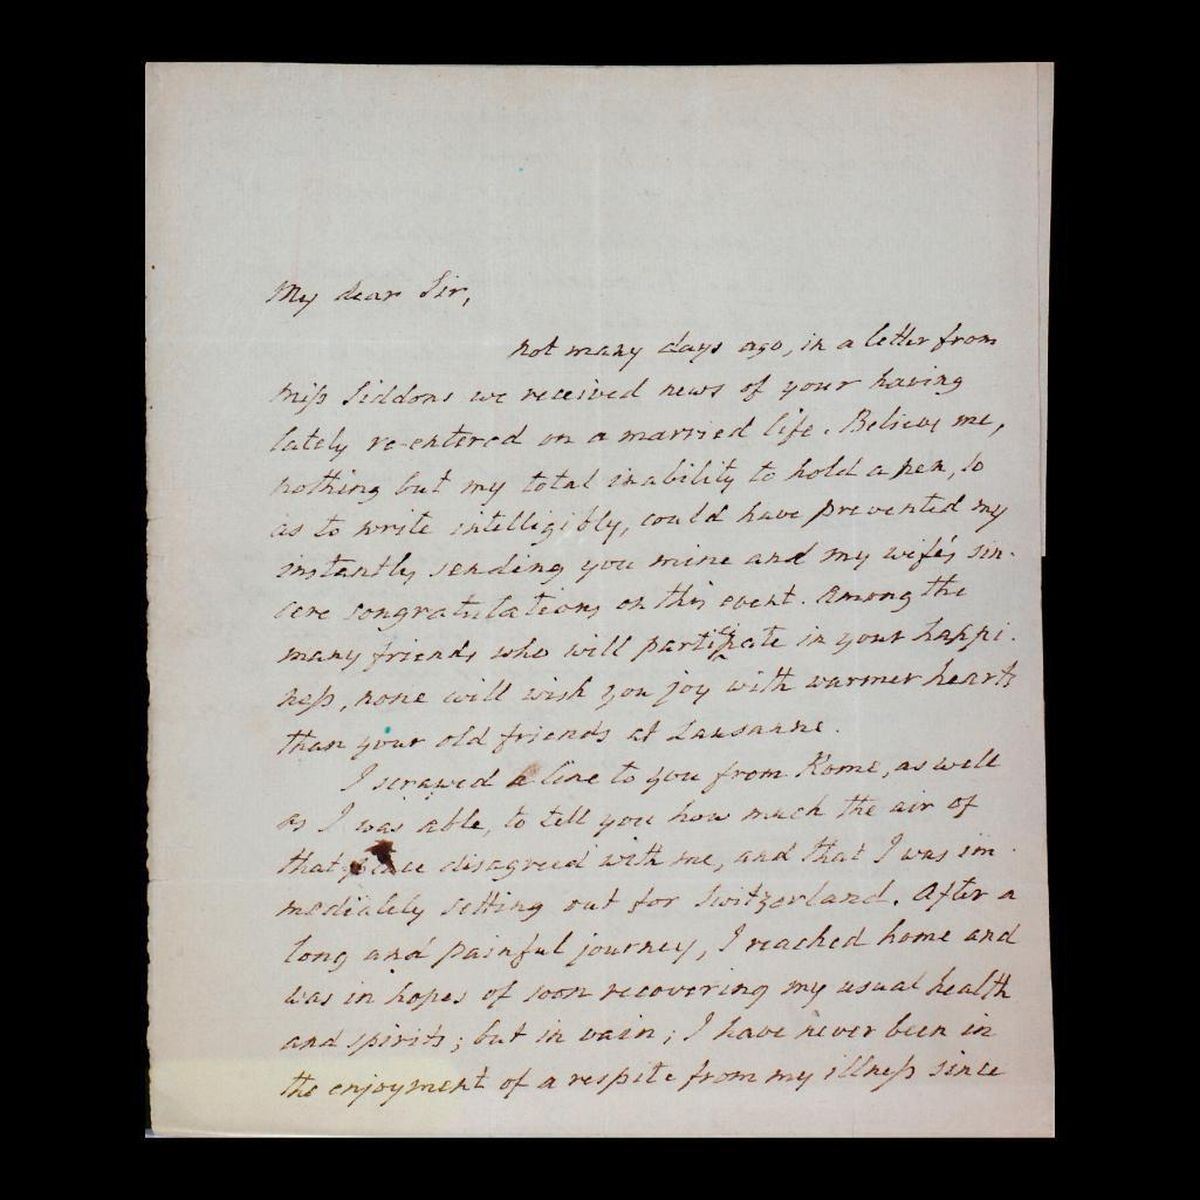 My dear Sir,
not many days ago, in a letter from
Miss Siddons we received news of your having
lately re-entered on a married life. Believe me,
nothing but my total inability to hold a pen, so
as to write intelligibly, could have prevented my
instantly sending you mine and my wife's sin-
cere congratulations on this event. Among the
many friends who will participate in your happi-
ness, none will wish you joy with warmer hearts
than your old friends at Lausanne.
I scrawed a line to you from Rome, as well
as I was able, to tell you how much the air of
that place disagreed with me, and that I was im-
mediately setting out for Switzerland. After a
long and painful journey, I reached home and
was in hopes of soon recovering my usual health
and spirits; but in vain; I have never been in
the enjoyment of a respite from my illness since